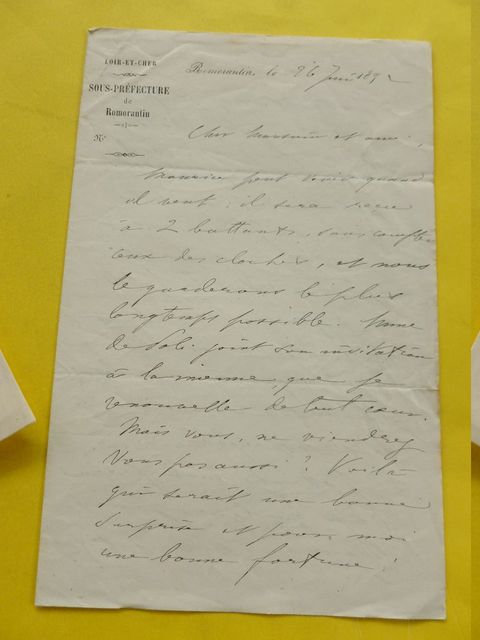 LOIR-ET-CHER
SOUS-PRÉFECTURE
de
Romorantin
N°
Romorantin, le 26 Juin 189
Cher Monsieur et ami,
Maurice peut venir quand
il veut : il sera reçu
à 2 battants, sans compter
ceux des cloches, et nous
le garderons le plus
longtemps possible. Mme
de joint son invitation
à la mienne, que je
renouvelle de tout cœur.
Mais vous, ne viendrez
vous pas aussi ? Voilà
qui serait une bonne
surprise et pour moi
une bonne fortune !